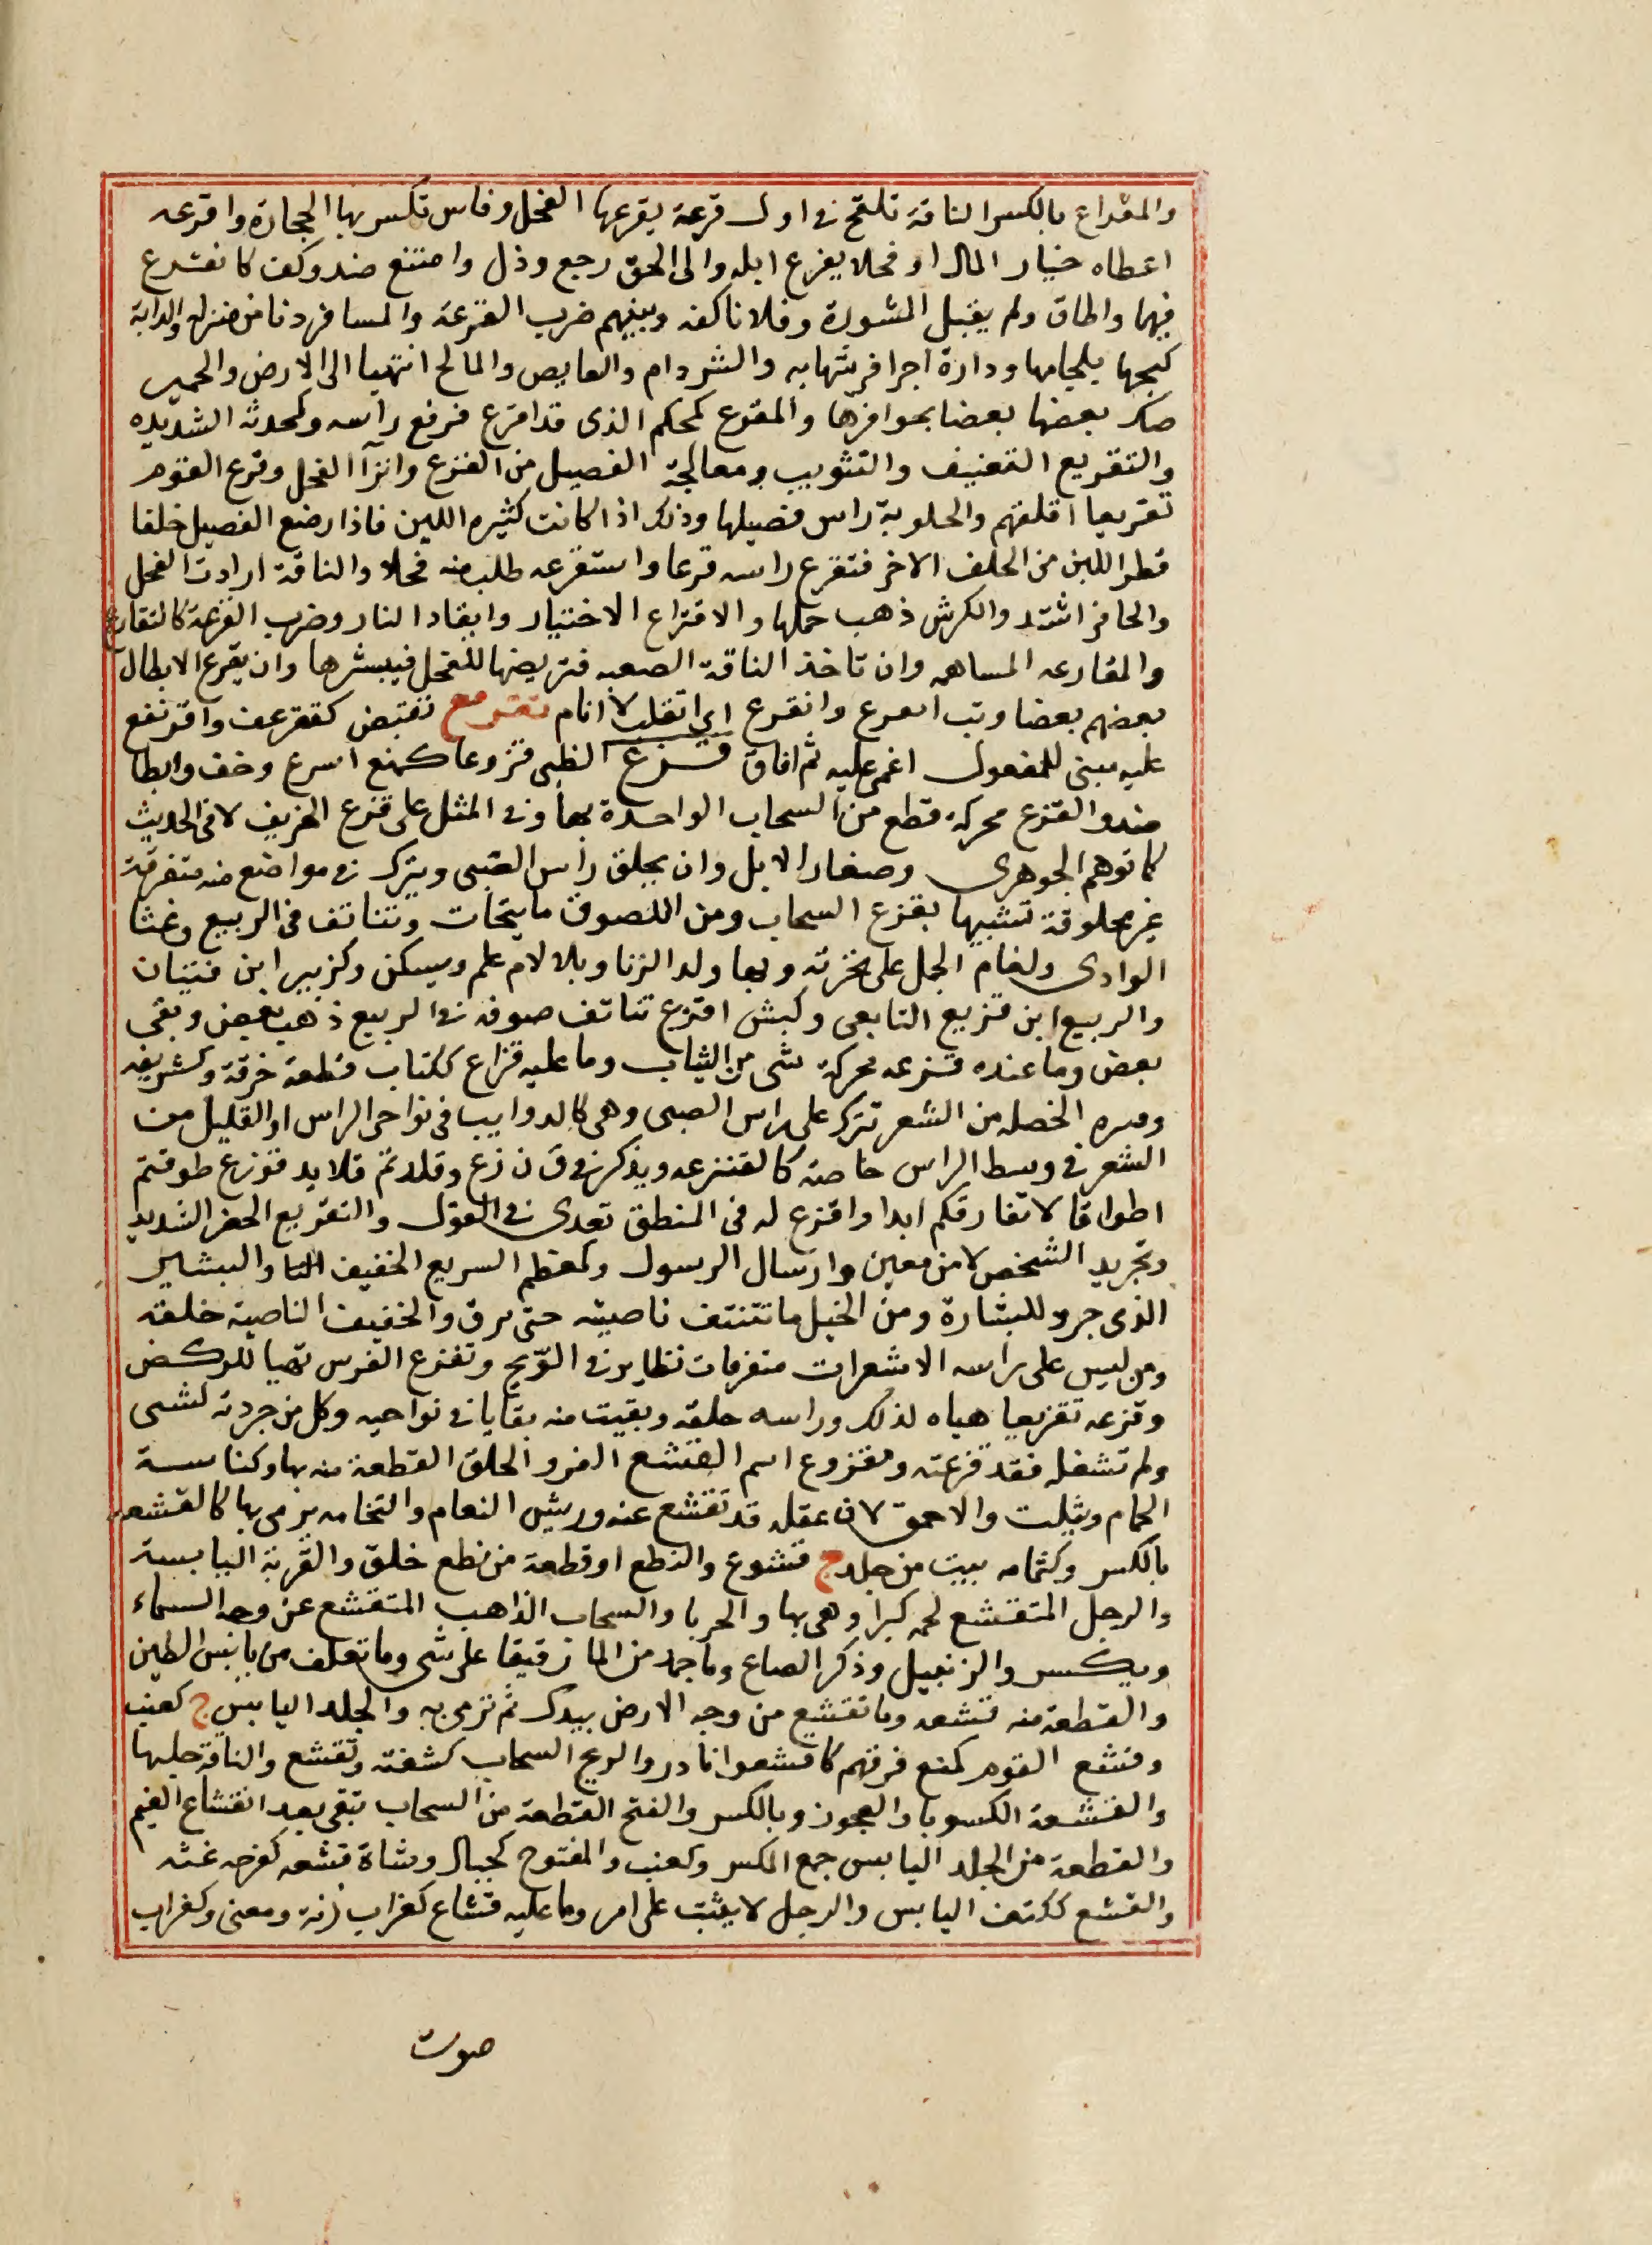 والمقراع بالكسر الناقة تلقح في اول قرعة يقرعها الفحل وفاس تكسر بها الحجارة واقرعه
اعطاه خيار المال او فحلا يقرع ابله والى الحق رجع وذل وامتنع ضد وكف كانقرع
فيهما واطاق ولم يقبل المشورة وفلانا كفه وبينهم ضرب القرعة والمسافر دنا من منزله والدابة
كبحها بلجامها وداره اجرا فرشها به والشر دام والغايص والمايح انتهيا الى الارض والحمير
صك بعضها بعضا بحوافرها والمقرع كمحكم الذى قد اقرع فرفع راسه وكمحدثة الشديده
والتقريع التعنيف والتثريب ومعالجة الفصيل من القرع وانزآ الفحل وقرع القوم
تقريعا اقلقهم والحلوبة راس فصيلها وذلك اذا كانت كثيره اللبن فاذا رضع الفصيل خلفا
قطر اللبن من الخلف الاخر فتقرع راسه قرعا واستقرعه طلب منه فحلا والناقة ارادت الفحل
والحافر اشتد والكرش ذهب خملها والاقتراع الاختيار وايقاد النار وضرب القرعة كالتقارع
والمقارعه المساهمه وان تاخذ الناقة الصعبه فتربضها للفحل فيبسرها وان يقرع الابطال
بعضهم بعضا وبت اتقرع وانقرع اي اتقلب لا انام تقرمع تقبض كتقرعف واقرنفع
عليه مبنى للمفعول اغمى عليه ثم افاق قزع الظبى قزوعا كمنع اسرع وخف وابطا
ضد والقزع محركة قطع من السحاب الواحدة بها وفي المثل على قزع الخريف لا في الحديث
كما توهم الجوهرى وصغار الابل وان يحلق راس الصبى ويترك في مواضع منه متفرقة
غير محلوقة تشبيها بقزع السحاب ومن الصوف ما يتحات ويتناتف في الربيع وغثا
الوادى ولغام الجمل على نخرته وبها ولد الزنا وبلا لام علم ويسكن وكزبير ابن فتيان
والربيع ابن قزيع التابعى وكبش اقزع تناتف صوفه في الربيع ذهب بعض وبقى
بعض وما عنده قزعه محركة شى من الثياب وما عليه قزاع ككتاب قطعة خرقة وكشريفه
وقبره الخصله من الشعر تترك على راس الصبى وهى كالذوايب في نواحى الراس او القليل من
الشعر في وسط الراس خاصة كالقنزعه ويذكر في ق ن زع وقلدتم قلايد قوزع طوقتم
اطواقا لا تفارقكم ابدا واقزع له في المنطق تعدى في القول والتقزيع الحضر الشديد
وتجريد الشخص لامر معين وارسال الرسول وكمعظم السريع الخفيف والبشير
الذى جرد للبشارة ومن الخيل ما تنتتف ناصيته حتى ترق والخفيف الناصية خلقه
ومن ليس على راسه الا شعرات متفرقات تتطاير في الريح وتقزع الفرس تهيا للركض
وقزعه تقزيعا هياه لذلك وراسه حلقه وبقيت منه بقايا في نواحيه وكل من جردته لشى
ولم تشغله فقد قزعته ومقزوع اسم القشع الفرو الخلق القطعة منه بها وكناسة
الحمام ويثلث والاحمق لان عقله قد تقشع عنه وريش النعام والنخامه يرمى بها كالقشعه
بالكسر وكثمامه بيت من جلد ج قشوع والنطع او قطعة من نطع خلق والقربة اليابسة
والرجل المتقشع لحمه كبرا وهى بها والحربا والسحاب الذاهب المتقشع عن وجه السماء
ويكسر والزنبيل وذكر الضباع وما جمد من الما رقيقا على شى وما تقلف من يابس الطين
والقطعة منه قشعه وما تقشع من وجه الارض بيدك ثم ترمى به والجلد اليابس ج كعنب
وقشع القوم كمنع فرقهم كاقشعوا نادر والريح السحاب كشفته وتقشع والناقة حلبها
والقشعة الكسوبا والعجوز وبالكسر والفتح القطعة من السحاب تبقى بعد انقشاع الغيم
والقطعة من الجلد اليابس جمع المكسر وكعنب والمفتوح كجبال وشاة قشعه كفرحه غثه
والقشع ككتف اليابس والرجل لا يثبت على امر وما عليه قشاع كغراب زنة ومعنى وكغراب
صوت